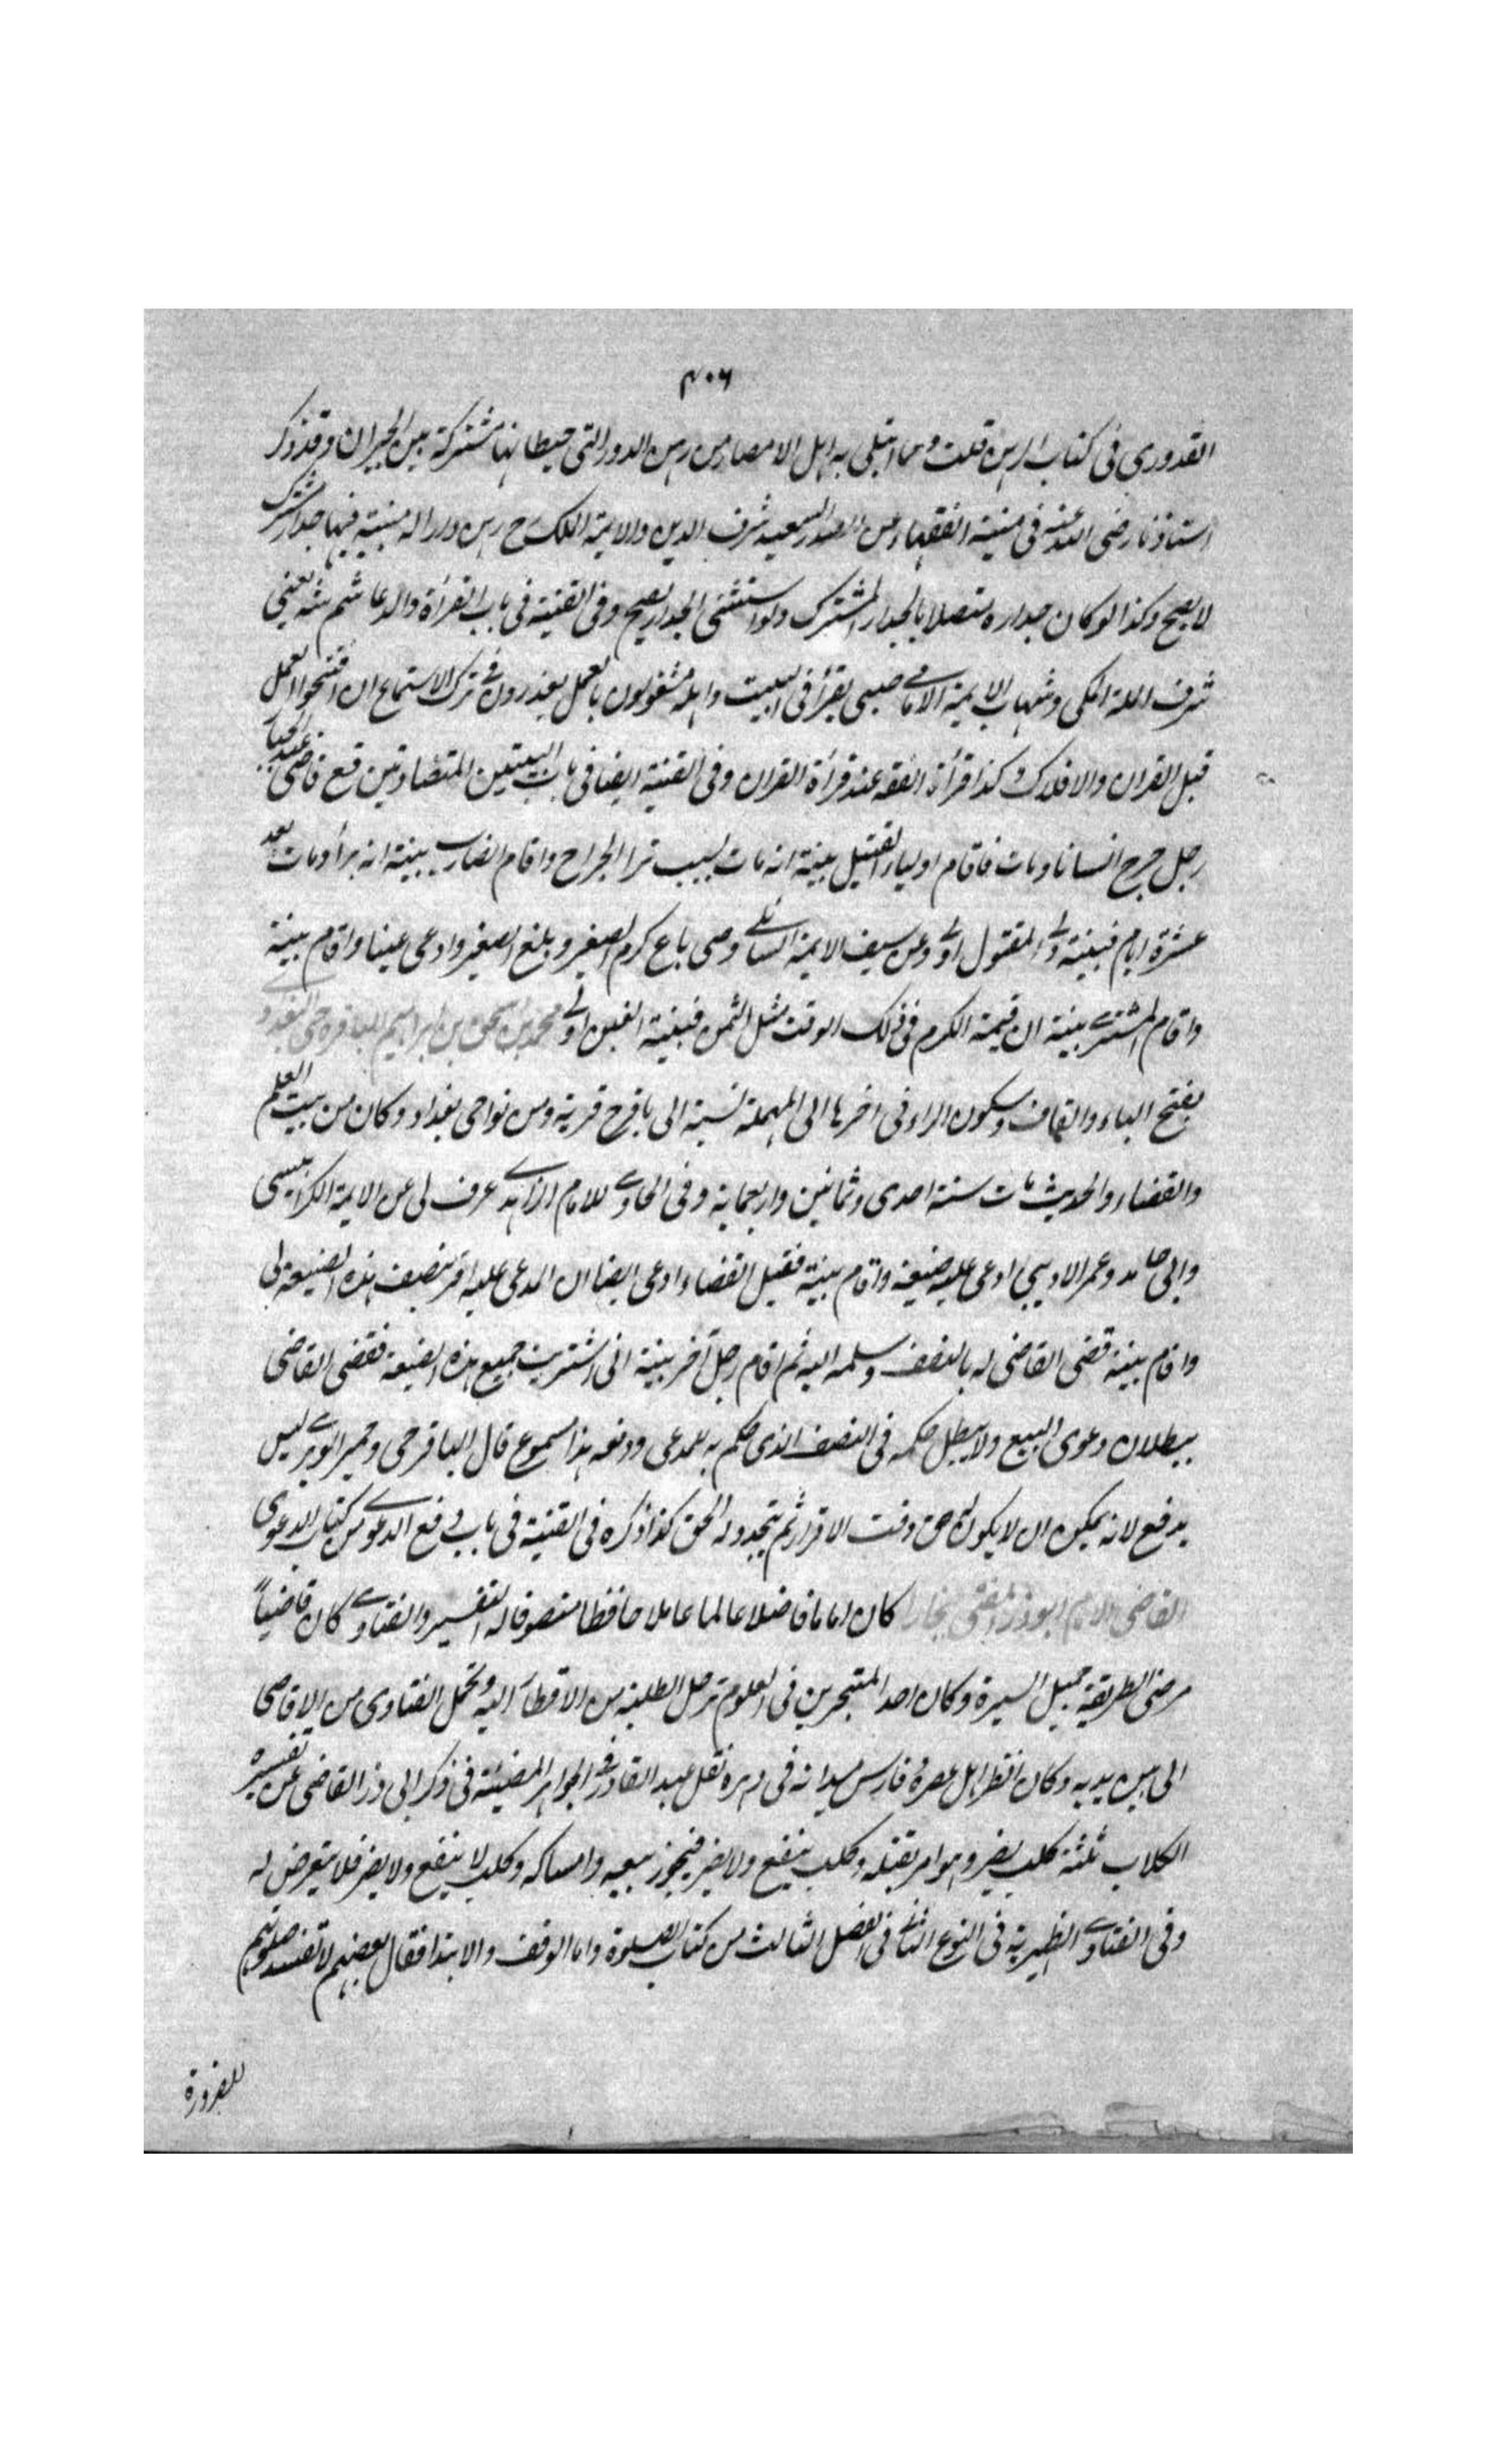 ٤٠٦
القدوري في كتاب الرهن قلت ومما ابتلى به اهل الامصار من رهن الدور التي حيطانها مشتركة بين الجيران وقد ذكر
استاذنا رضى الله عنه في منية الفقهاء عن الصدر السعيد شرف الدين والايمة المكى رح رهن دارا له مبنية فيها جدار مشترك
لا يصح وكذا لو كان جداره متصلا بالجدار المشترك ولو استثنى الجدار يصح وفي القنية في باب القرأة والدعا شم شه يعنى
شرف الملة المكى وشهاب الايمة الامامي صبى يقرأ في البيت واهله مشغولون بالعمل يعذرون في ترك الاستماع ان افتتحوا العمل
قبل القران والا فلا وكذا قرأة الفقه عند قرأة القران وفي القنية ايضا في باب البينتين المتضادتين قع قاضى عبد الجبار
رجل جرح انسانا ومات فاقام اولياء القتيل بينة انه مات بسبب الجراح واقام الضارب بينة انه برأ ومات بعد
عشرة ايام فبينة ولى المقتول اولى وعن سيف الايمة السائلى وصى باع كرم الصغير وبلغ الصغير وادعى غبنا واقام بينة
واقام المشترى بينة ان قيمة الكرم في ذلك الوقت مثل الثمن فبينة الغبن اولى محمد بن اسحق بن ابراهيم الباقرحى البغدادى
بفتح الباء والقاف وسكون الراء في اخرها الحاء المهملة نسبة الى باقرح قرية ومن نواحى بغداد وكان من بيت العلم
والقضاء والحديث مات سنة احدى وثمانين واربعماية وفي الحاوى للامام الزاهدى عرف لى عن الايمة الكرابيسى
وابى حامد وعمر ادعى عليه ضيعة واقام بينة فقبل القضاء ادعى ايضا ان المدعى عليه اقر بنصف هذه الضيعة لى
واقام بينة قضى القاضى له بالنصف وسلمه اليه ثم اقام رجل آخر بينة انى اشتريت جميع هذه الضيعة فقضى القاضى
ببطلان دعوى البيع ولا يبطل حكمه في النصف الذى حكم به للمدعى ودفعه هذا مسموع قال الباقرحى وحمير الوبرى ليس
بدفع لانه يمكن ان لا يكون له حق وقت الاقرار ثم يتجدد له الحق كذا ذكره في القنية في باب دفع الدعوى من كتاب الدعوى
القاضى الامام ابو ذر المفتى ببخارا كان اماما فاضلا عالما عاملا حافظا متصوفا له التفسير والفتاوى كان قاضيًا
مرضى الطريقة جميل السيرة وكان احد المتبحرين في العلوم ترحل الطلبة من الاقطار اليه وتحمل الفتاوى من الاقاصى
الى بين يديه وكان انظر اهل عصره وفارس ميدانه في دهره نقل عبد القادر في الجواهر المضيئة في ذكر ابى ذر القاضى عن تفسيره
الكلاب ثلثة كلب يضر وهو امر بقتله وكلب ينفع ولا يضر فيجوز بيعه وامساكه وكلب لا ينفع ولا يضر فلا يتعرض له
وفي الفتاوى الظهيرية في النوع الثانى في الفصل الثالث من كتاب الصلوة واما الوقف والابتدا فقال بعضهم لا تفسد صلوتهم
للضرورة